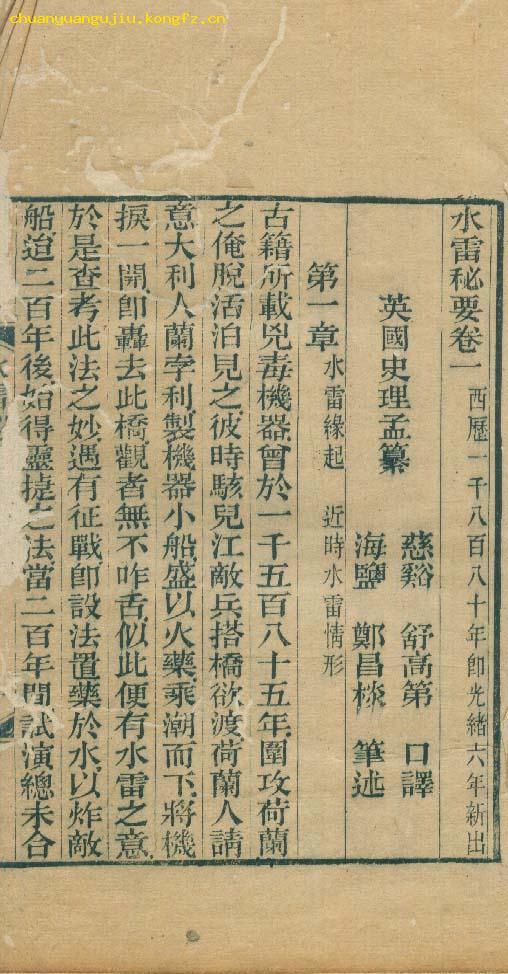 chuanyuangujiu.kongfz.cn
水雷秘要卷一 西歷一千八百八十年卽光緒六年新出
英國史理孟纂
慈谿 舒高第 口譯
海鹽 鄭昌棪 筆述
第一章 水雷緣起 近時水雷情形
古籍所載兇毒機器曾於一千五百八十五年圍攻荷蘭
之俺脫活泊見之彼時駭兒江敵兵搭橋欲渡荷蘭人請
意大利人蘭孛利製機器小船盛以火藥乘潮而下將機
捩一開卽轟去此橋觀者無不咋舌似此便有水雷之意
於是查考此法之妙遇有征戰卽設法置藥於水以炸敵
船迨二百年後始得靈捷之法當二百年間試演總未合